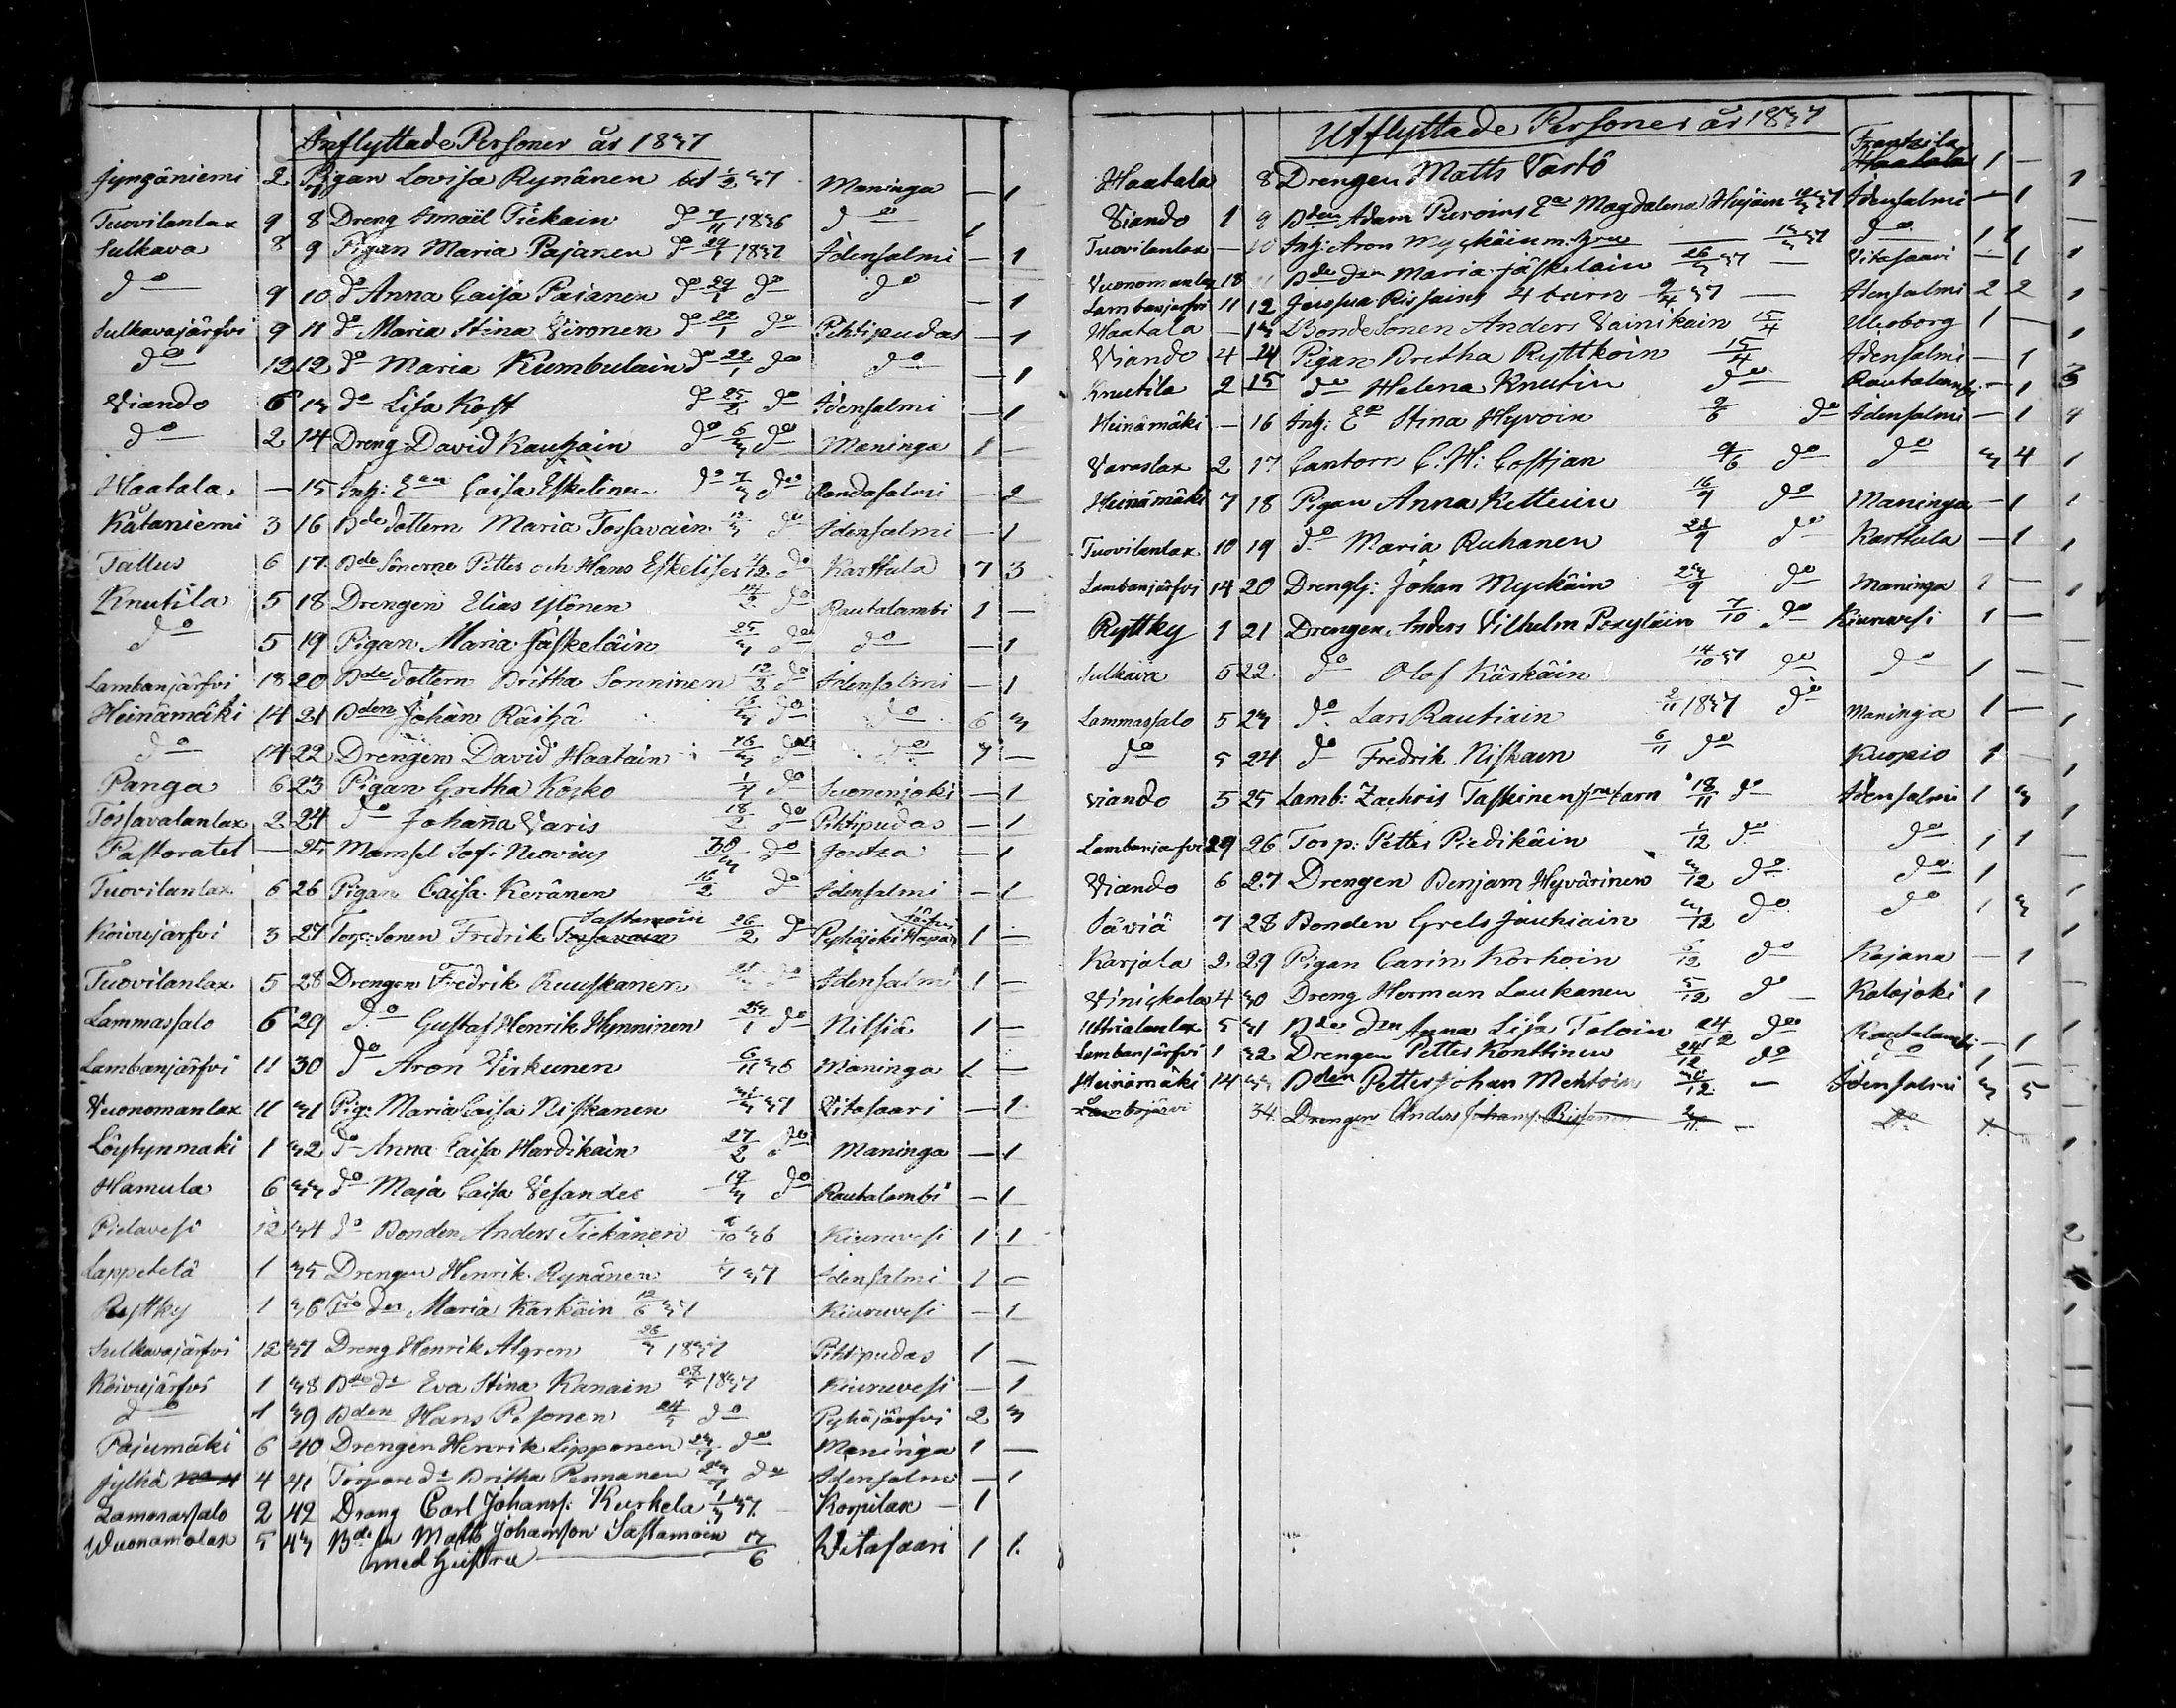 Inflyttade Personer år 1837
Jyngäniemi 2 7 Pigan Lovisa Rynänen bet 1/2 37 Maninga — 1
Tuovilanlax 9 8 Dreng Ismaël Tiekain do 7/11 1836 do 1
Sulkava 8 9 Pigan Maria Pajanen do 29/1 1837 Idensalmi — 1
do 9 10 do Anna Caisa Pajanen do 29/1 do do — 1
Sulkavajärfvi 9 11 do Maria Stina Vironen do 22/1 do Pihtipudas — 1
do 12 12 do Maria Kumbulain do 22/1 do do — 1
Viando 6 13 do Lisa Kost do 25/2 do Idensalmi — 1
do 2 14 Dreng David Kauhain do 6/3 do Maninga 1 —
Haatala — 15 Inh: Ean Caisa Eskelinen do 7/3 do Randasalmi — 2
Kåtaniemi 3 16 Bde dottern Maria Tossavain 12/3 do Idensalmi — 1
Tallus 6 17 Bde Sönerne Petter och Hans Eskeliser do Karttula 7 3
Knutila 5 18 Drengen Elias Ylönen do Rautalambi 1 —
do 5 19 Pigan Maria Jäskeläin 25/3 do do — 1
Lambanjärfvi 18 20 Bde dottern Britha Sonninen 12/3 do Idensalmi — 1
Heinämäki 14 21 Bden Johan Räihä do do 6 3
do 14 22 Drengen David Haatain 16/3 do do —
Panga 6 23 Pigan Gretha Kosko 1/4 do Suonenjoki — 1
Tossavalanlax 2 24 do Johanna Varis 18/2 do Pihtipudas — 1
Pastoratet — 25 Mamsel Sofi Neovius 30/3 do Joutza — 1
Tuovilanlax 6 26 Pigan Caisa Keränen 16/2 do Idensalmi — 1
Koivujärfvi 3 27 Torp: Sonen Fredrik Tossavain Sastamoin 26/2 do Pyhäjoki Hapa järfvi 1 —
Tuovilanlax 5 28 Drengen Fredrik Ruuskanen do Idensalmi 1 —
Lammassalo 6 29 do Gustaf Henrik Hynninen 23/1 do Nilsiä 1 —
Lambanjärfvi 11 30 do Aron Virkunen 6/11 36 Maninga 1 —
Vuonomanlax 11 31 Pig: Maria Caisa Niskanen 37 Vitasaari — 1
Löytynmäki 1 32 do Anna Caisa Hardikain 27/2 do Maninga — 1
Hamula 6 33 do Maja Caisa Vesander 19/3 do Rautalambi — 1
Pielavesi 12 34 do Bonden Anders Tiekänen 9/10 36 Kiuruvesi 1 1
Lappetelä 1 35 Drengen Henrik Rynänen 37 Idensalmi 1 —
Ryttky 1 36 Maria Kärkäin 12/6 37 Kiuruvesi — 1
Sulkavajärfvi 12 37 Dreng Henrik Algren 26/3 1837 Pihtipudas 1 —
Koivujärfvi 1 38 Eva Stina Kanain 1837 Kiuruvesi — 1
do 1 39 Bden Hans Pesonen 24/5 do Pyhäjärfvi 2 3
Pajumäki 6 40 Drengen Henrik Lipponen do Maninga 1 —
Jylhä No 4 4 41 Torpare dr Britha Pennanen do Idensalmi — 1
Lammassalo 2 42 Dräng Carl Johanss: Kurkela 1/3 37 Korpilax — 1
Wuonamolax 5 43 Bde sn Matts Johansson Sastamoin 17/6 Witasaari 1 1
med Hustru
Utflyttade Personer år 1837
Haatala 8 Drengen Matts Vastö Frantzila Haatala 1 —
Viando 1 9 Bden Adam Puroins Ea Magdalena Hujain 37 Idensalmi — 1
Tuovilanlax — 10 Inh: Aron Myckäin m: hru 37 do 1 1
Vuonomanlax 18 11 Bde dtn Maria Jäskelain 26/3 37 — Vitasaari — 1
Lambanjärfvi 11 12 Rissains 4 barn 9/4 37 — Idensalmi 2 2
Haatala — 13 Bonde Sonen Anders Vainikain 15/4 Uleoborg 1 —
Viando 4 14 Pigan Bretha Ryttkoin 15/4 Idensalmi — 1
Knutila 2 15 do Helena Knutin do Rautalambi — 1
Heinämäki — 16 Inh: Ea Stina Hyvoin 2/6 do Idensalmi — 1
Varoslax 2 17 Cantorn C: H: Costjan 9/6 do do 3 4
Heinämäki 7 18 Pigan Anna Kettuin 16/9 do Maninga — 1
Tuovilanlax 10 19 do Maria Ruhanen do Karttula — 1
Lambanjärfvi 14 20 Drengs: Johan Myckäin 23/9 do Maninga 1 —
Ryttky 1 21 Drengen Anders Vilhelm Poxyläin 7/10 do Kiuruvesi 1 —
Sulkava 5 22 do Olof Kärkäin 14/10 37 do do 1 —
Lammassalo 5 23 do Lars Rautiain 2/11 1837 do Maninga 1 —
do 5 24 do Fredrik Niskain 6/11 do Kuopio 1 —
Viando 5 25 Lamb: Zachris Taskinen barn 18/11 do Idensalmi 1 3
Lambanjarfvi 29 26 Torp: Petter Piedikäin 1/12 do do 1 1
Viando 6 27 Drengen Benjam Hyvärinen 3/12 do do 1
Säviä 7 28 Bonden Grels Jauhiain 3/12 do do 1 3
Karjala 2 29 Pigan Carin Korhoin 5/12 do Kajana — 1
Vinickala 4 30 Dreng Herman Laukanen 5/12 do — Kalajoki 1
Utrialanlax 5 31 Bde dtn Anna Lisa Toloin 24/12 do Rautalambi — 1
Lambanjärfvi 1 32 Drengen Petter Konttinen 24/12 do do 1 —
Heinämäki 14 33 Bden Petter Johan Mehtoin 30/12 — Idensalmi 3 5
Lambajärvi 34 Drengen Anders Johanss. Rissanen 2/11 — Do 1